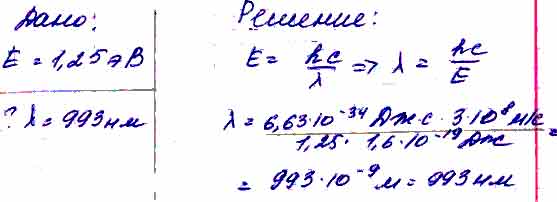 Дано:
E = 1,25 эВ
? λ = 993 нм
Решение:
E = hc/λ => λ = hc/E
λ = 6,63·10⁻³⁴ Дж·с · 3·10⁸ м/с / 1,25 · 1,6·10⁻¹⁹ Дж =
= 993·10⁻⁹ м = 993 нм